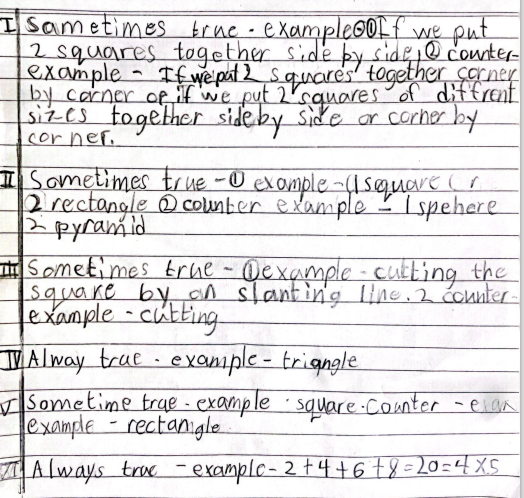 I Sometimes true - example ① If we put
2 squares together side by side, ② counter-
example - If we put 2 squares together corner
by corner or if we put 2 squares of diffrent
sizes together side by side or corner by
corner.
II Sometimes true - ① example - (1 square
2 rectangle ② counter example - 1 spehere
2 pyramid
III Sometimes true - ① example - cutting the
square by an slanting line. 2 counter-
example - cutting
IV Alway true - example - triangle
V Sometime true - example - square. Counter -
example - rectangle
VI Always true - example - 2+4+6+8=20=4×5